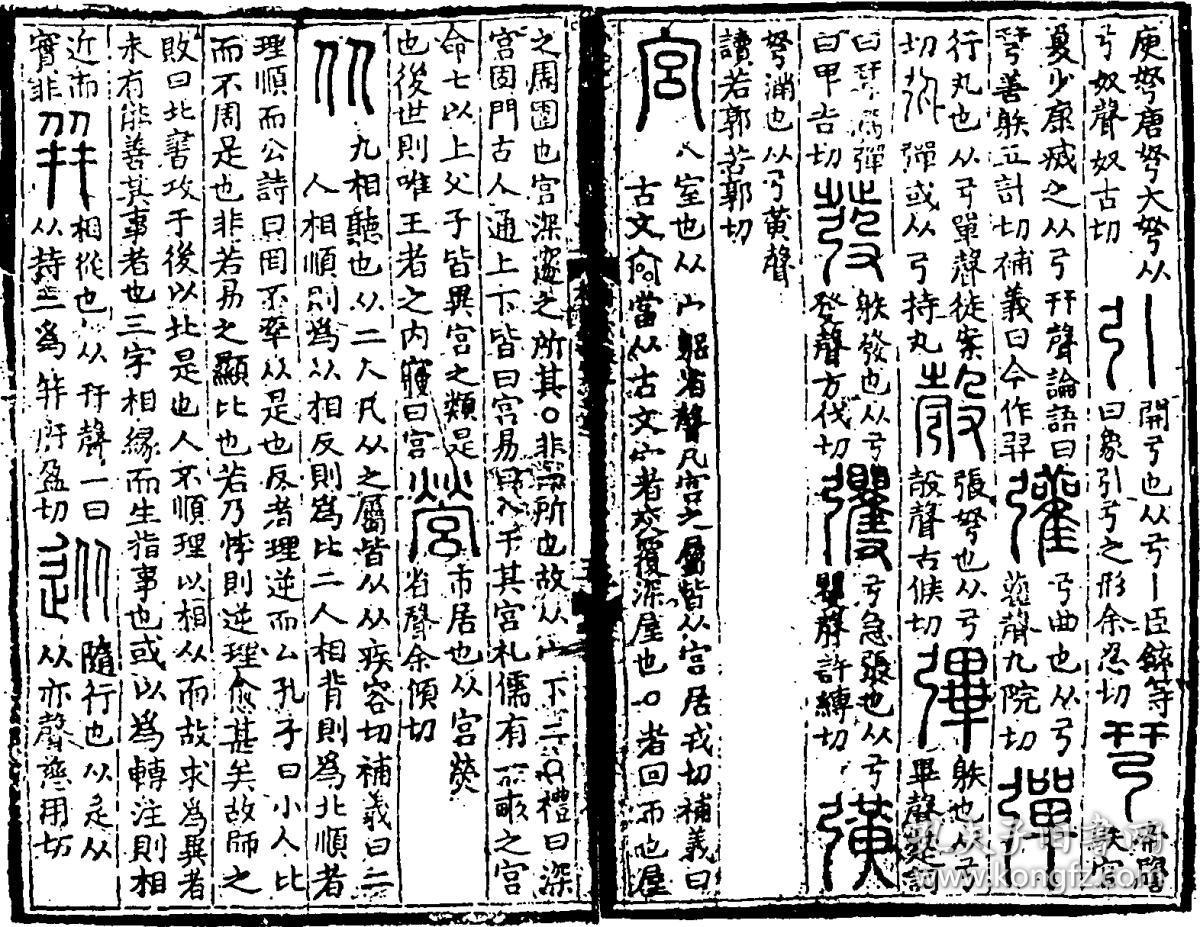 庾弩唐弩大弩从
弓奴聲奴古切
開弓也从弓丨臣鉉等
曰象引弓之形余忍切
帝嚳
夏少康滅之从弓幵聲論語曰
善躲五計切補義曰今作羿
弓曲也从弓
雚聲九院切
行丸也从弓單聲徒案
切 彈或从弓持丸
張弩也从弓
㱿聲古候切
躲也从弓
畢聲楚詞
曰
曰甲吉切
躲發也从弓
發聲方伐切
弓急張也从弓
瞿聲許縛切
弩滿也从弓黃聲
讀若郭苦郭切
宮
室也从宀躳省聲凡宮之屬皆从宮居戎切補義曰
古文 當从古文宀者交覆深屋也 者回而也屋
之周圍也宮深邃之所其 非 所也故从 下二 禮曰深
宮固門古人通上下皆曰宮易曰入于其宮礼儒有一畝之宮
命士以上父子皆異宮之類是
也後世則唯王者之內寢曰宮
營
市居也从宮熒
省聲余傾切
从
相聽也从二人凡从之屬皆从从疾容切補義曰二
人相順則爲从相反則爲比二人相背則爲北順者
理順而公詩曰罔不率从是也反者理逆而厶孔子曰小人比
而不周是也非若易之顯比也若乃悖則逆理愈甚矣故師之
敗曰北書攻于後以北是也人不順理以相从而故求爲異者
未有能善其事者也三字相緣而生指事也或以爲轉注則相
近而
實非
相從也从幵聲一曰
从持二爲幷府盈切
隨行也从辵从
从亦聲慈用切
孔夫子旧书网
www.kongfz.com